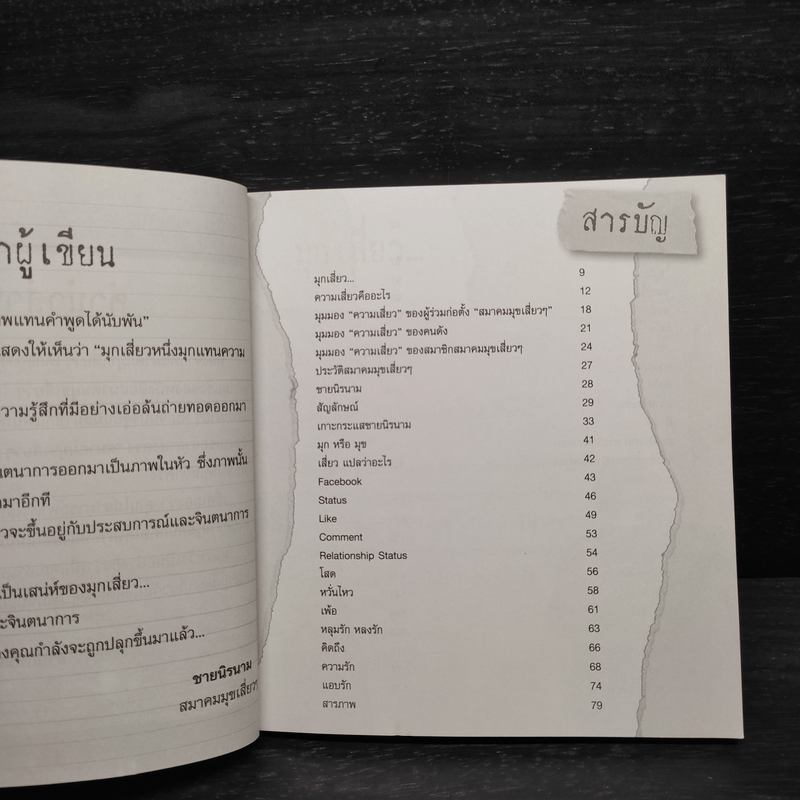 ผู้เขียน
พแทนคำพูดได้นับพัน”
สดงให้เห็นว่า “มุกเสี่ยวหนึ่งมุกแทนความ
วามรู้สึกที่มีอย่างเอ่อล้นถ่ายทอดออกมา
นตนาการออกมาเป็นภาพในหัว ซึ่งภาพนั้น
มาอีกที
วจะขึ้นอยู่กับประสบการณ์และจินตนาการ
เป็นเสน่ห์ของมุกเสี่ยว...
ะจินตนาการ
งคุณกำลังจะถูกปลุกขึ้นมาแล้ว...
ชายนิรนาม
สมาคมมุขเสี่ยวๆ
สารบัญ
มุกเสี่ยว... 9
ความเสี่ยวคืออะไร 12
มุมมอง “ความเสี่ยว” ของผู้ร่วมก่อตั้ง “สมาคมมุขเสี่ยวๆ” 18
มุมมอง “ความเสี่ยว” ของคนดัง 21
มุมมอง “ความเสี่ยว” ของสมาชิกสมาคมมุขเสี่ยวๆ 24
ประวัติสมาคมมุขเสี่ยวๆ 27
ชายนิรนาม 28
สัญลักษณ์ 29
เกาะกระแสชายนิรนาม 33
มุก หรือ มุข 41
เสี่ยว แปลว่าอะไร 42
Facebook 43
Status 46
Like 49
Comment 53
Relationship Status 54
โสด 56
หวั่นไหว 58
เพ้อ 61
หลุมรัก หลงรัก 63
คิดถึง 66
ความรัก 68
แอบรัก 74
สารภาพ 79